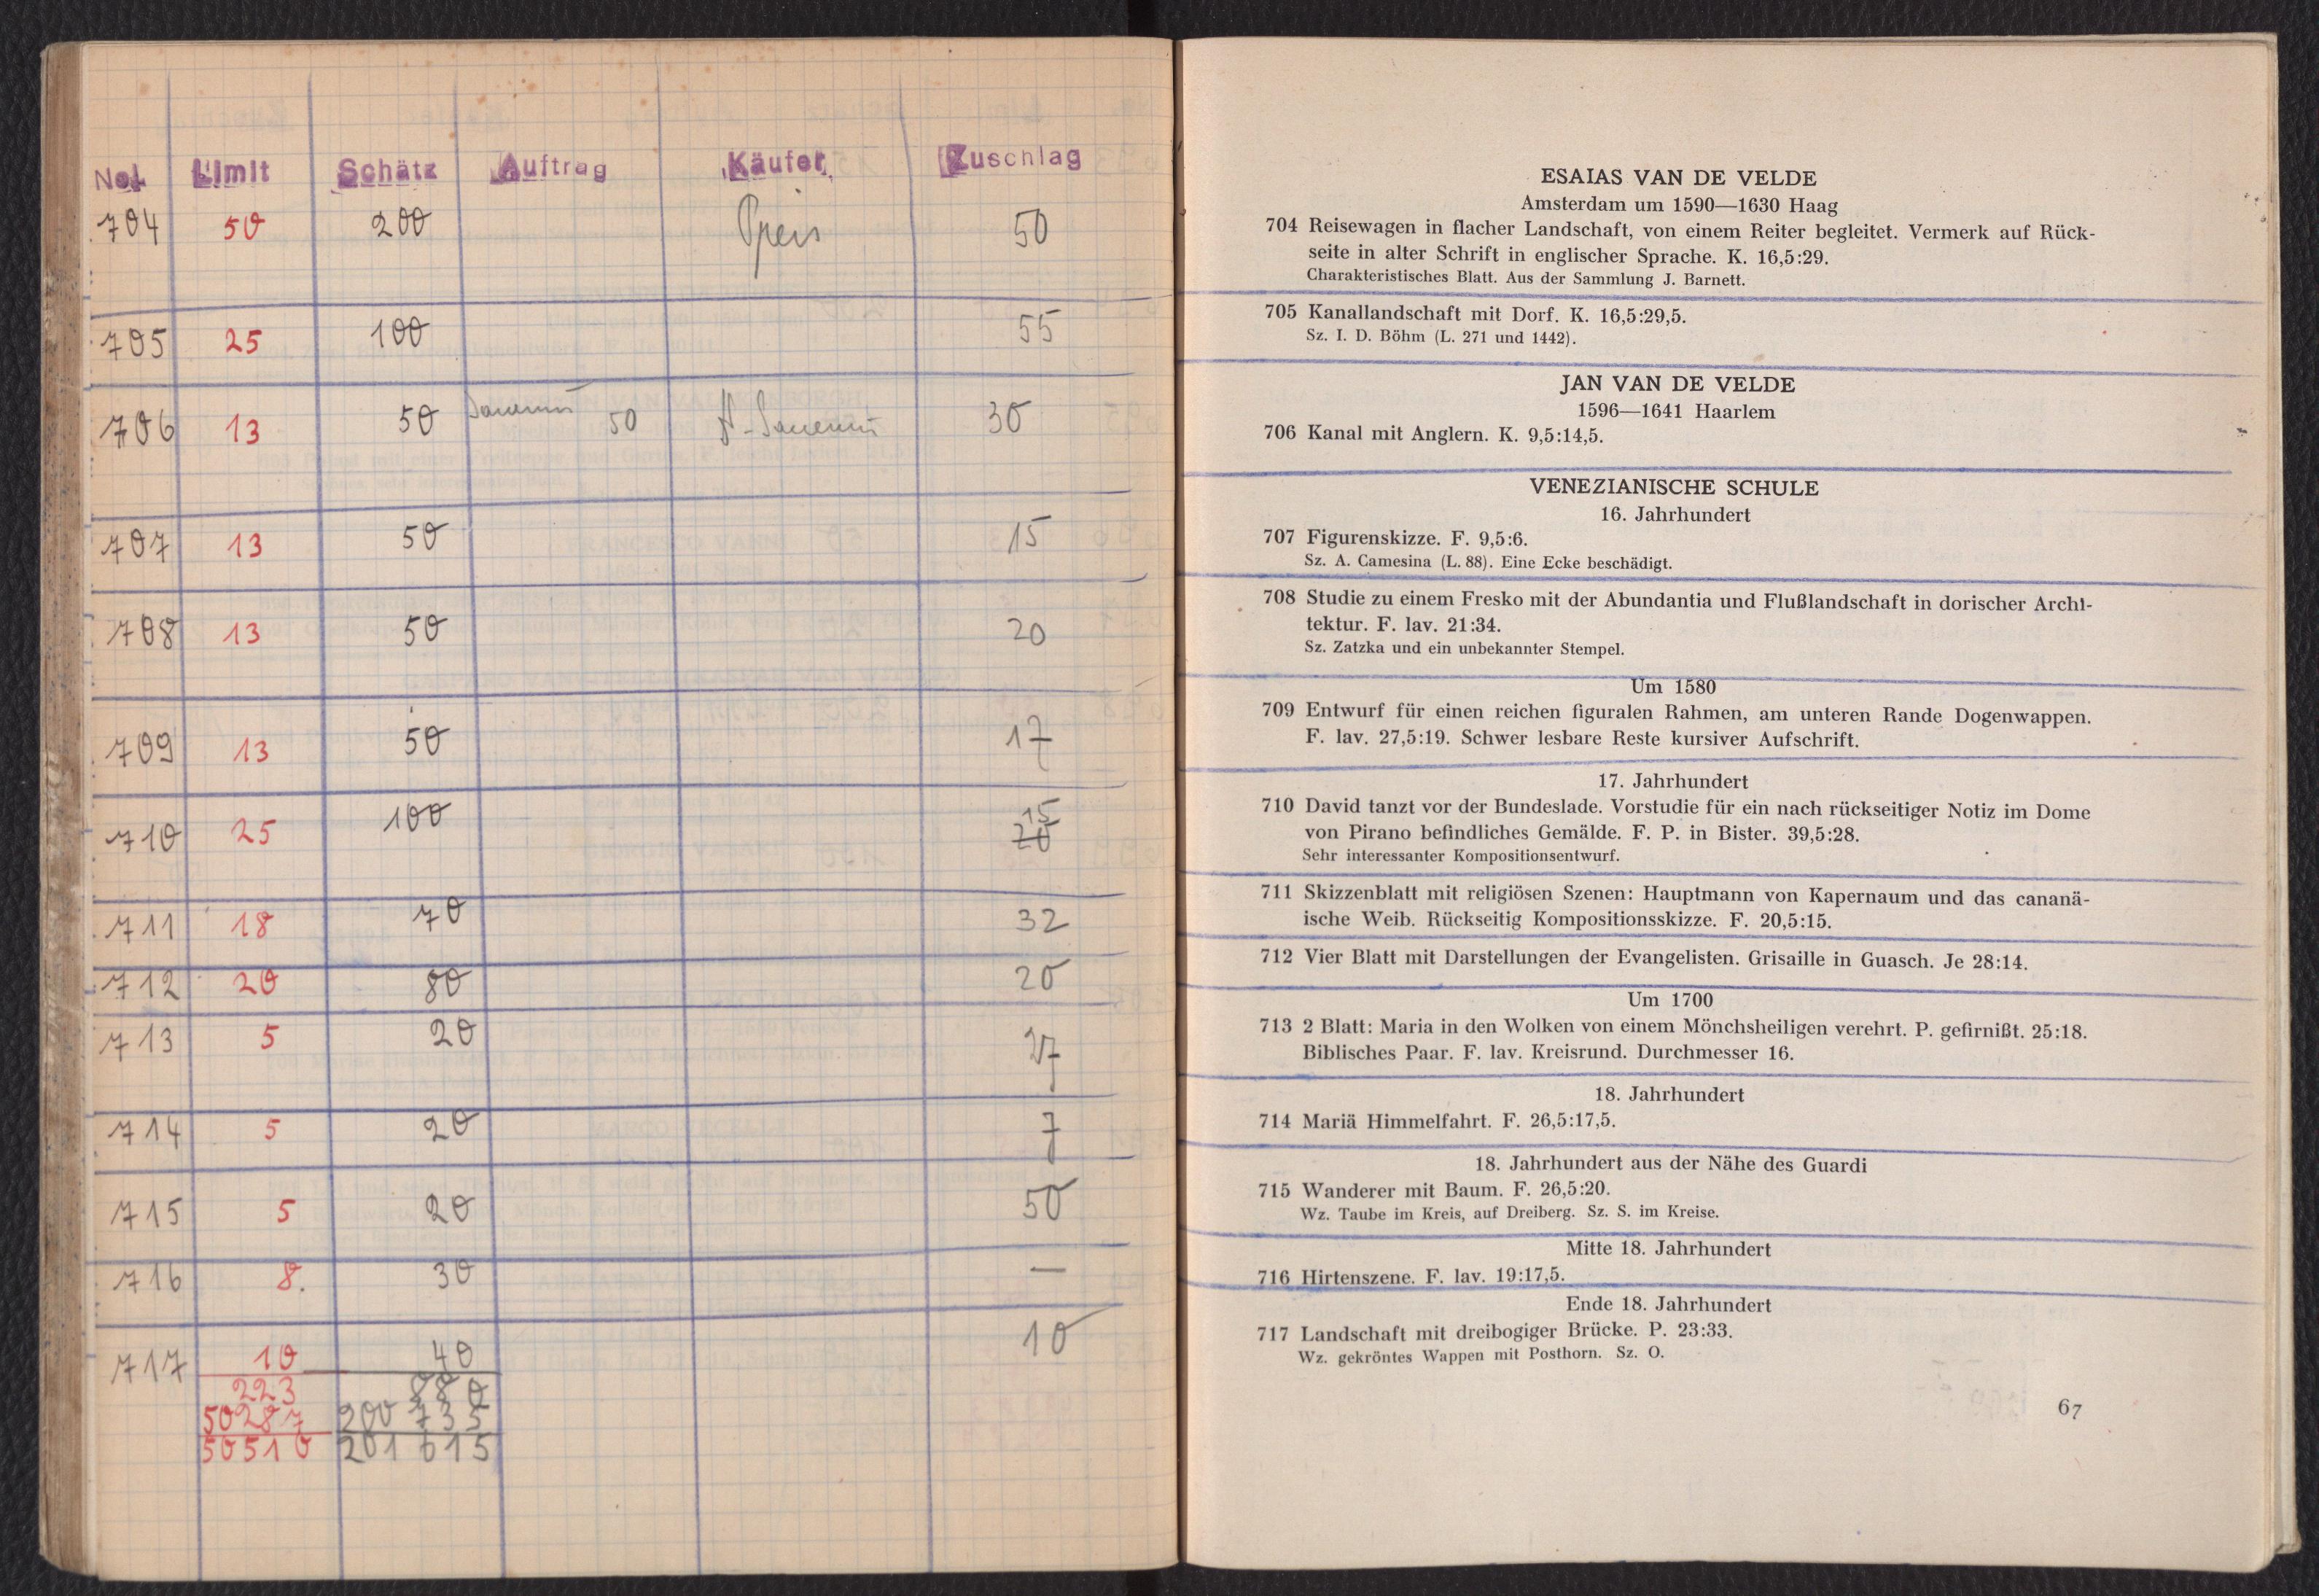 No. Limit Schätz Auftrag Käufer Zuschlag
704 50 200 Preis 50
705 25 100 55
706 13 50 50 30
707 13 50 15
708 13 50 20
709 13 50 17
710 25 100 15
20
711 18 70 32
712 20 80 20
713 5 20
714 5 20 7
715 5 20 50
716 8. 30 —
717 10 40 10
223 880
50287 200 735
50510 201 615
ESAIAS VAN DE VELDE
Amsterdam um 1590—1630 Haag
704 Reisewagen in flacher Landschaft, von einem Reiter begleitet. Vermerk auf Rück-
seite in alter Schrift in englischer Sprache. K. 16,5:29.
Charakteristisches Blatt. Aus der Sammlung J. Barnett.
705 Kanallandschaft mit Dorf. K. 16,5:29,5.
Sz. I. D. Böhm (L. 271 und 1442).
JAN VAN DE VELDE
1596—1641 Haarlem
706 Kanal mit Anglern. K. 9,5:14,5.
VENEZIANISCHE SCHULE
16. Jahrhundert
707 Figurenskizze. F. 9,5:6.
Sz. A. Camesina (L. 88). Eine Ecke beschädigt.
708 Studie zu einem Fresko mit der Abundantia und Flußlandschaft in dorischer Archi-
tektur. F. lav. 21:34.
Sz. Zatzka und ein unbekannter Stempel.
Um 1580
709 Entwurf für einen reichen figuralen Rahmen, am unteren Rande Dogenwappen.
F. lav. 27,5:19. Schwer lesbare Reste kursiver Aufschrift.
17. Jahrhundert
710 David tanzt vor der Bundeslade. Vorstudie für ein nach rückseitiger Notiz im Dome
von Pirano befindliches Gemälde. F. P. in Bister. 39,5:28.
Sehr interessanter Kompositionsentwurf.
711 Skizzenblatt mit religiösen Szenen: Hauptmann von Kapernaum und das cananä-
ische Weib. Rückseitig Kompositionsskizze. F. 20,5:15.
712 Vier Blatt mit Darstellungen der Evangelisten. Grisaille in Guasch. Je 28:14.
Um 1700
713 2 Blatt: Maria in den Wolken von einem Mönchsheiligen verehrt. P. gefirnißt. 25:18.
Biblisches Paar. F. lav. Kreisrund. Durchmesser 16.
18. Jahrhundert
714 Mariä Himmelfahrt. F. 26,5:17,5.
18. Jahrhundert aus der Nähe des Guardi
715 Wanderer mit Baum. F. 26,5:20.
Wz. Taube im Kreis, auf Dreiberg. Sz. S. im Kreise.
Mitte 18. Jahrhundert
716 Hirtenszene. F. lav. 19:17,5.
Ende 18. Jahrhundert
717 Landschaft mit dreibogiger Brücke. P. 23:33.
Wz. gekröntes Wappen mit Posthorn. Sz. O.
67